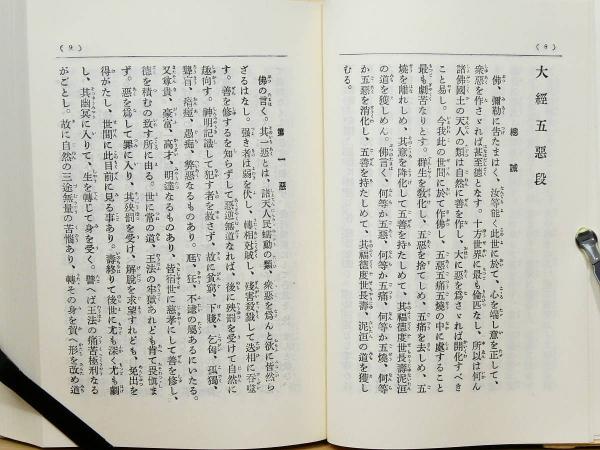 大經五惡段
總誡
佛、彌勒に告たまはく、汝等能く此世に於て、心を端し意を正して、
衆惡を作さゞれば甚至德となす。十方世界に最も倫匹なし。所以は何ん
諸佛國土の天人の類は自然に善を作し、大に惡を爲さゞれば開化すべき
こと易し。今我此の世間に於て作佛し、五惡五痛五燒の中に處すること
最も劇苦なりとす。群生を敎化し、五惡を捨てしめ、五痛を去しめ、五
燒を離れしめ、其意を降化して五善を持たしめて、其福德度世長壽泥洹
の道を獲しめん。佛言く、何等か五惡、何等か五痛、何等か五燒、何等
か五惡を消化し、五善を持たしめて、其福德度世長壽、泥洹の道を獲し
むる。
(9)
第一惡
佛の言く。其一惡とは、諸天人民蠕動の類、衆惡を爲んと欲に皆然ら
ざるはなし。强き者は弱を伏し、轉相尅賊し、殘害殺戮して迭相に吞噬
す。善を修するを知らずして惡逆無道なれば、後に殃罰を受けて自然に
趣向す。神明記識して犯す者を赦さず、故に貧窮、下賤、乞匈、孤獨、
聾盲、瘖瘂、愚痴、弊惡なるものあり。尫、狂、不逮の屬あるにいたる。
又尊貴、豪富、高才、明達なるものあり、皆宿世に慈孝にして善を修し、
德を積むの致す所に由る。世に常の道、王法の牢獄あれども肯て畏愼ま
ず。惡を爲して罪に入り、其殃罰を受け、解脫を求望すれども、免出を
得がたし、世間に此目前に見る事あり。壽終りて後世に尤も深く尤も劇
し、其幽冥に入りて、生を轉じて身を受く。譬へば王法の痛苦極刑なる
がごとし。故に自然の三途無量の苦惱あり、轉その身を貿へ形を改め道